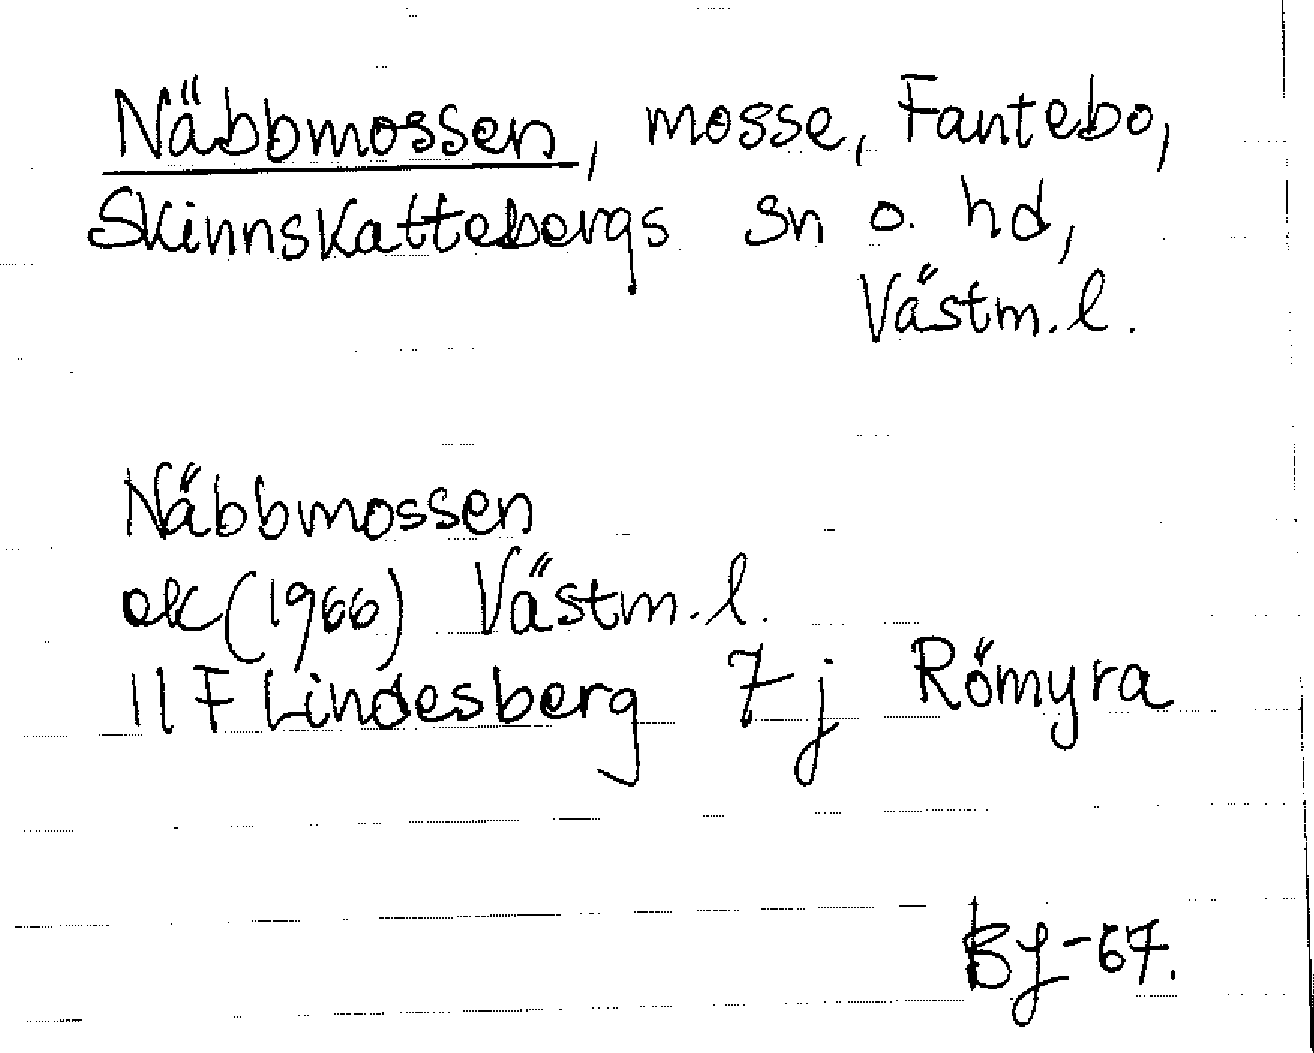 Näbbmossen, mosse, Fantebo,
Skinnskattebergs sn o. hd,
Västm. l.
Näbbmossen
ek (1966) Västm. l.
11 F Lindesberg 7 j Römyra
BJ-67.